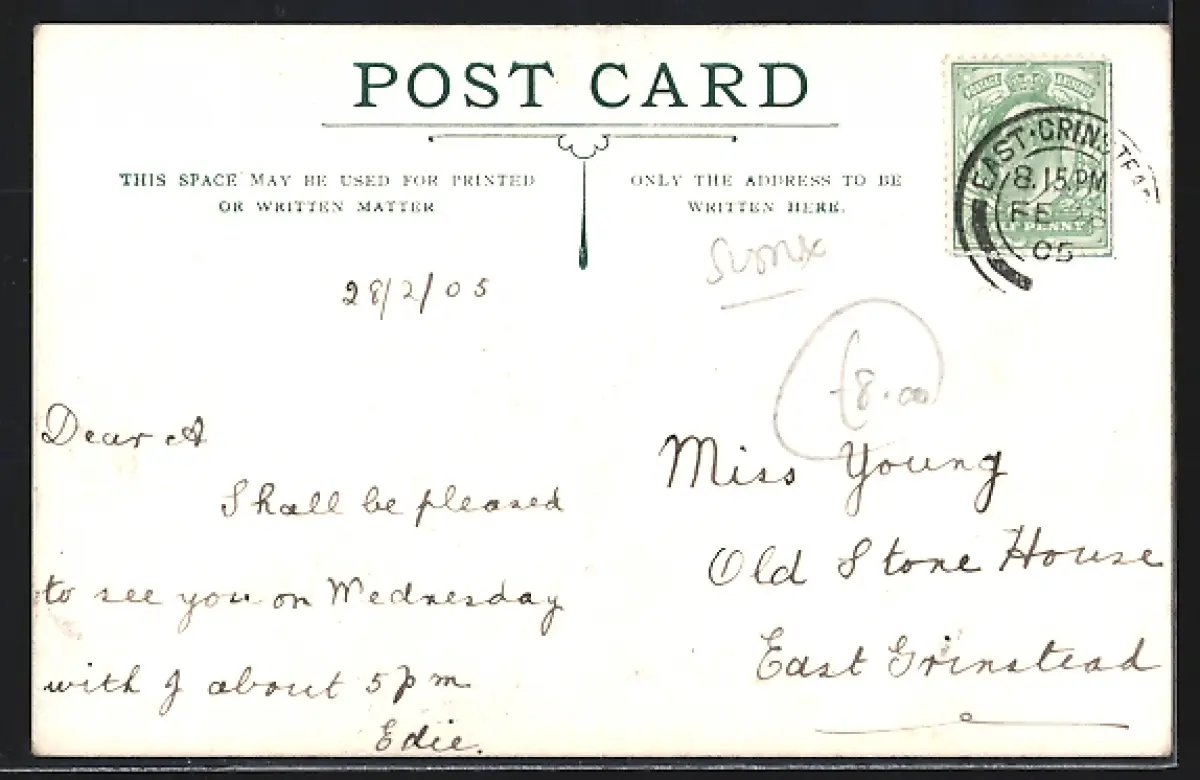 POST CARD
THIS SPACE MAY BE USED FOR PRINTED
OR WRITTEN MATTER
ONLY THE ADDRESS TO BE
WRITTEN HERE.
POSTAGE REVENUE
HALF PENNY
EAST·GRINSTEAD
8.15 PM
FE 28
05
28/2/05
£8.00
Dear A
Shall be pleased
to see you on Wednesday
with J about 5 pm
Edie.
Miss Young
Old Stone House
East Grinstead